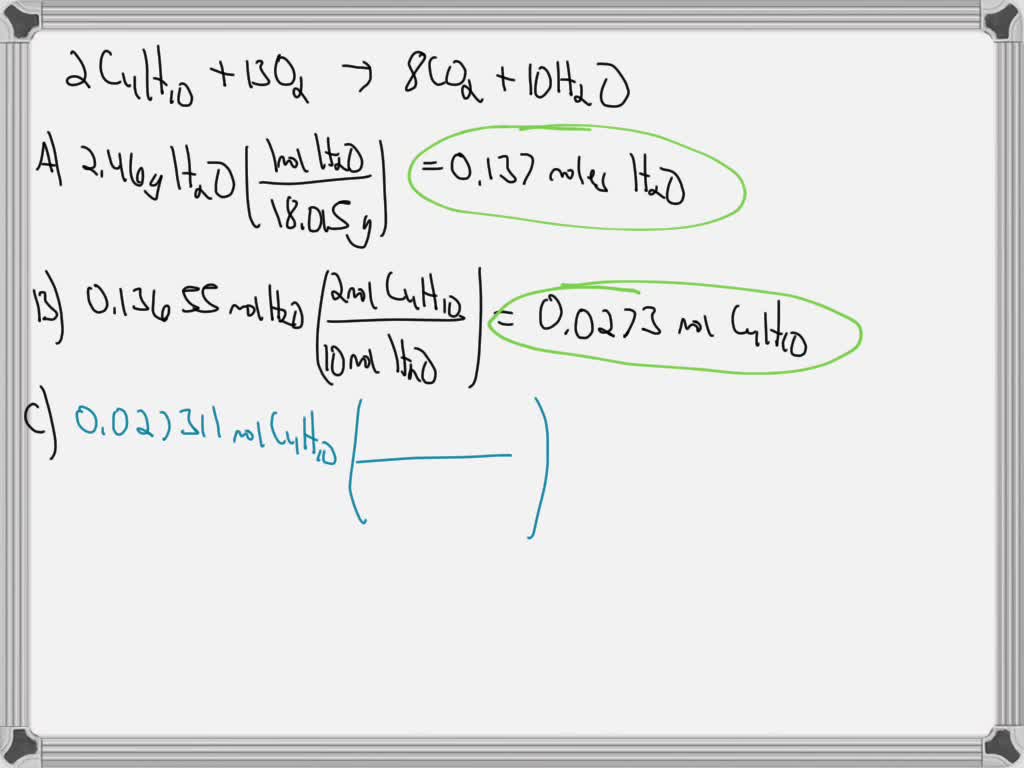 2C4H10 + 13O2 → 8CO2 + 10H2O
A) 2.46g H2O (mol H2O / 18.015g) = 0.137 moles H2O
B) 0.13655 mol H2O (2mol C4H10 / 10mol H2O) = 0.0273 mol C4H10
C) 0.027311 mol C4H10 ( )